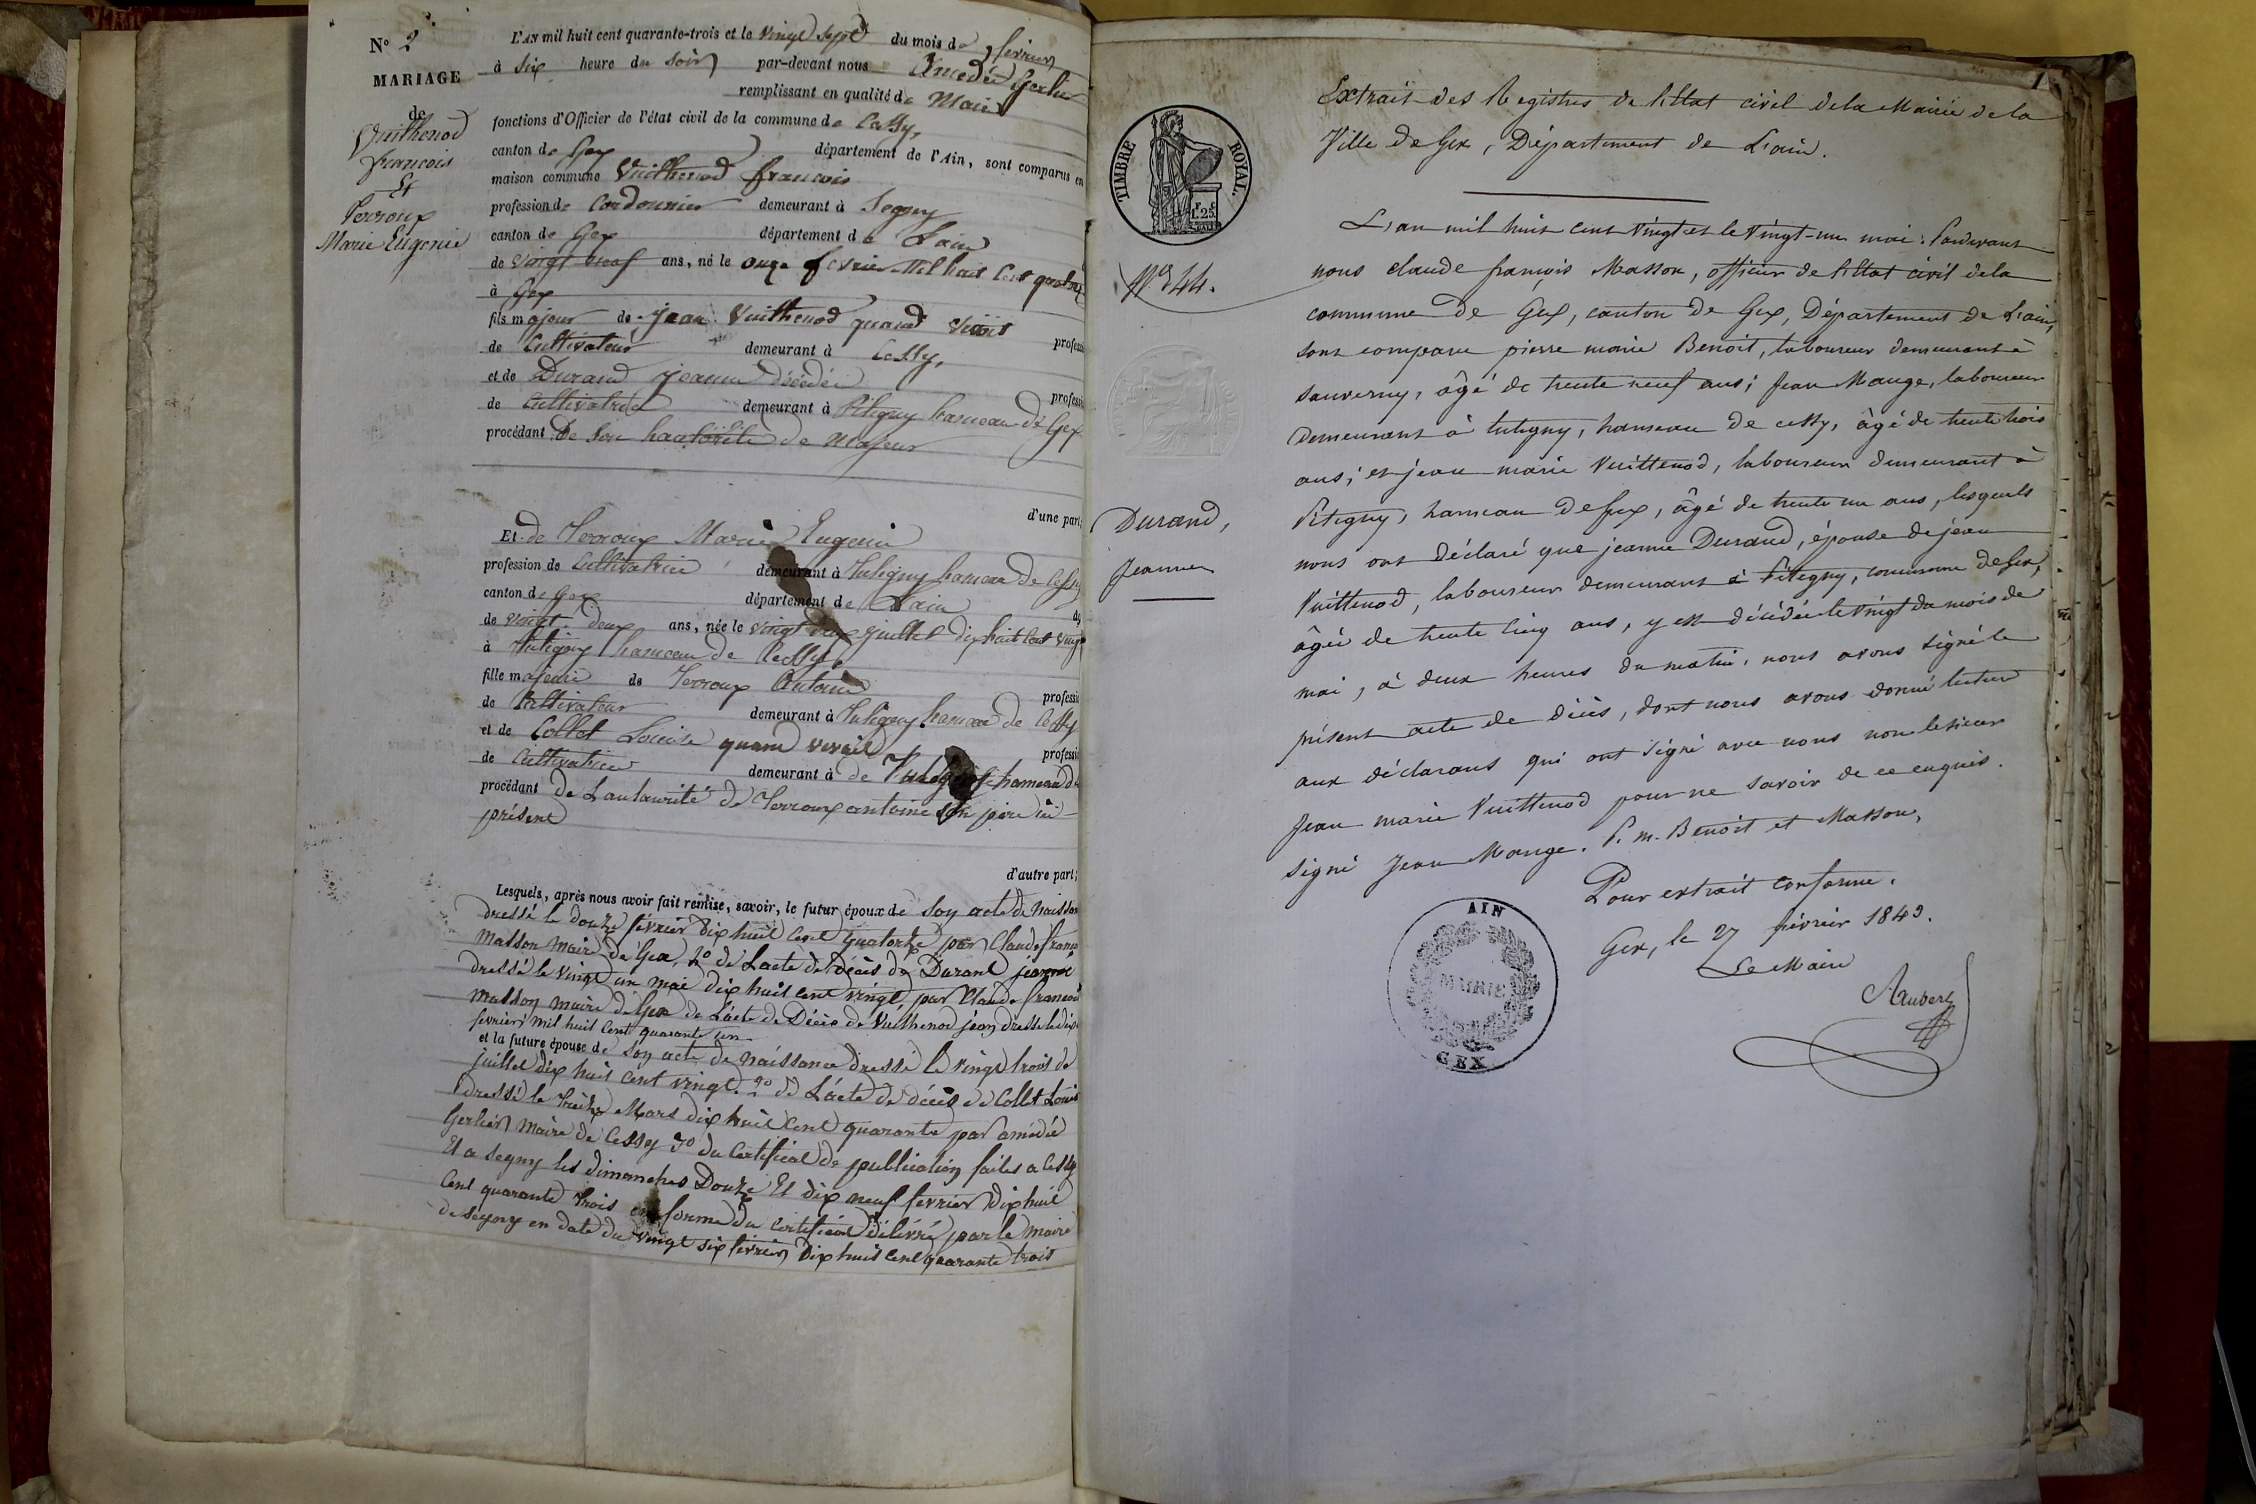 N° 2
MARIAGE
de
Vuithenod
francois
Et
Terroux
Marie Eugenie
L'AN mil huit cent quarante-trois et le vingt sept du mois de fevrier
à six heure du soir par-devant nous Amedée Gerlier
remplissant en qualité de Maire
fonctions d'Officier de l'état civil de la commune de Cessy,
canton de Gex département de l'Ain, sont comparus en
maison commune Vuithenod francois
profession de Cordonnier demeurant à Segny
canton de Gex département de Lain
de vingt neuf ans, né le onze fevrier Mil huit Cent quatorze
à Gex
fils majeur de jean Vuithenod quand vivait profession
de Cultivateur demeurant à Cessy,
et de Durand jeanne décédée profession
de Cultivatrice demeurant à Pitigny hameau de Gex
procédant De son hautorité de Majeur
d'une part;
Et de Terroux Marie Eugenie
profession de Cultivatrice demeurant à Tutigny hameau de Cessy
canton de Gex département de Lain
de vingt deux ans, née le vingt deux juillet dix huit cent vingt
à Tutigny hameau de Cessy
fille majeure de Terroux Antoine profession
de Cultivateur demeurant à Tutigny hameau de Cessy
et de Collet Louise quand vivait profession
de Cultivatrice demeurant à de Tutigny hameau de
procédant de Lautaurité de Terroux antoine son père ici
présent
d'autre part;
Lesquels, après nous avoir fait remise, savoir, le futur époux de son acte de Naissance
dressé le douze février dix huit Cent quatorze par Claude françois
Masson maire de Gex, 2° de Lacte de Décès de Durant jeanne
dressé le vingt un mai dix huit cent vingt, par Claude francois
Masson maire de Gex de Lacte de Décès de Vuithenod jean dressé le dix
fevrier mil huit Cent quarante un
et la future épouse de son acte de naissance Dressé le vingt trois de
juillet dix huit Cent vingt. 2° de Lacte de décès de Collet Louise
dressé le treize Mars dix huit Cent quarante par amédée
Gerlier maire de Cessy 3° du Certificat de publication faites a Cessy
Et a Segny les dimanches Douze Et dix neuf fevrier dix huit
Cent quarante trois en forme du certificat délivré par le maire
de Segny en date du vingt six fevrier dix huit Cent quarante trois
1
Extrait des Registres de l'Etat civil de la Mairie de la
Ville de Gex, Département de L'ain.
TIMBRE ROYAL.
1 F. 25 C.
N° 44.
Durand,
Jeanne
L'an mil huit cent vingt et le vingt-un mai: Pardevant
nous claude françois Masson, officier de l'Etat civil de la
commune de Gex, canton de Gex, Département de L'ain,
sont comparu pierre marie Benoit, laboureur demeurant à
Sauverny, âgé de trente neuf ans; Jean Mange, laboureur
demeurant à tutigny, hameau de cessy, âgé de trente trois
ans; et jean marie Vuittenod, laboureur demeurant à
Pitigny, hameau de Gex, âgé de trente un ans, lesquels
nous ont déclaré que jeanne Durand, épouse de jean
Vuittenod, laboureur demeurant à Pitegny, commune de Gex,
âgée de trente cinq ans, y est décédée le vingt du mois de
mai, à deux heures du matin, nous avons signé le
présent acte de décès, dont nous avons donné lecture
aux déclarans qui ont signé avec nous non le sieur
Jean marie Vuittenod pour ne savoir de ce enquis.
signé Jean Mange. P. m. Benoit et Masson,
Pour extrait conforme.
Gex, le 27 février 1843.
Le Maire
AIN
MAIRIE
GEX